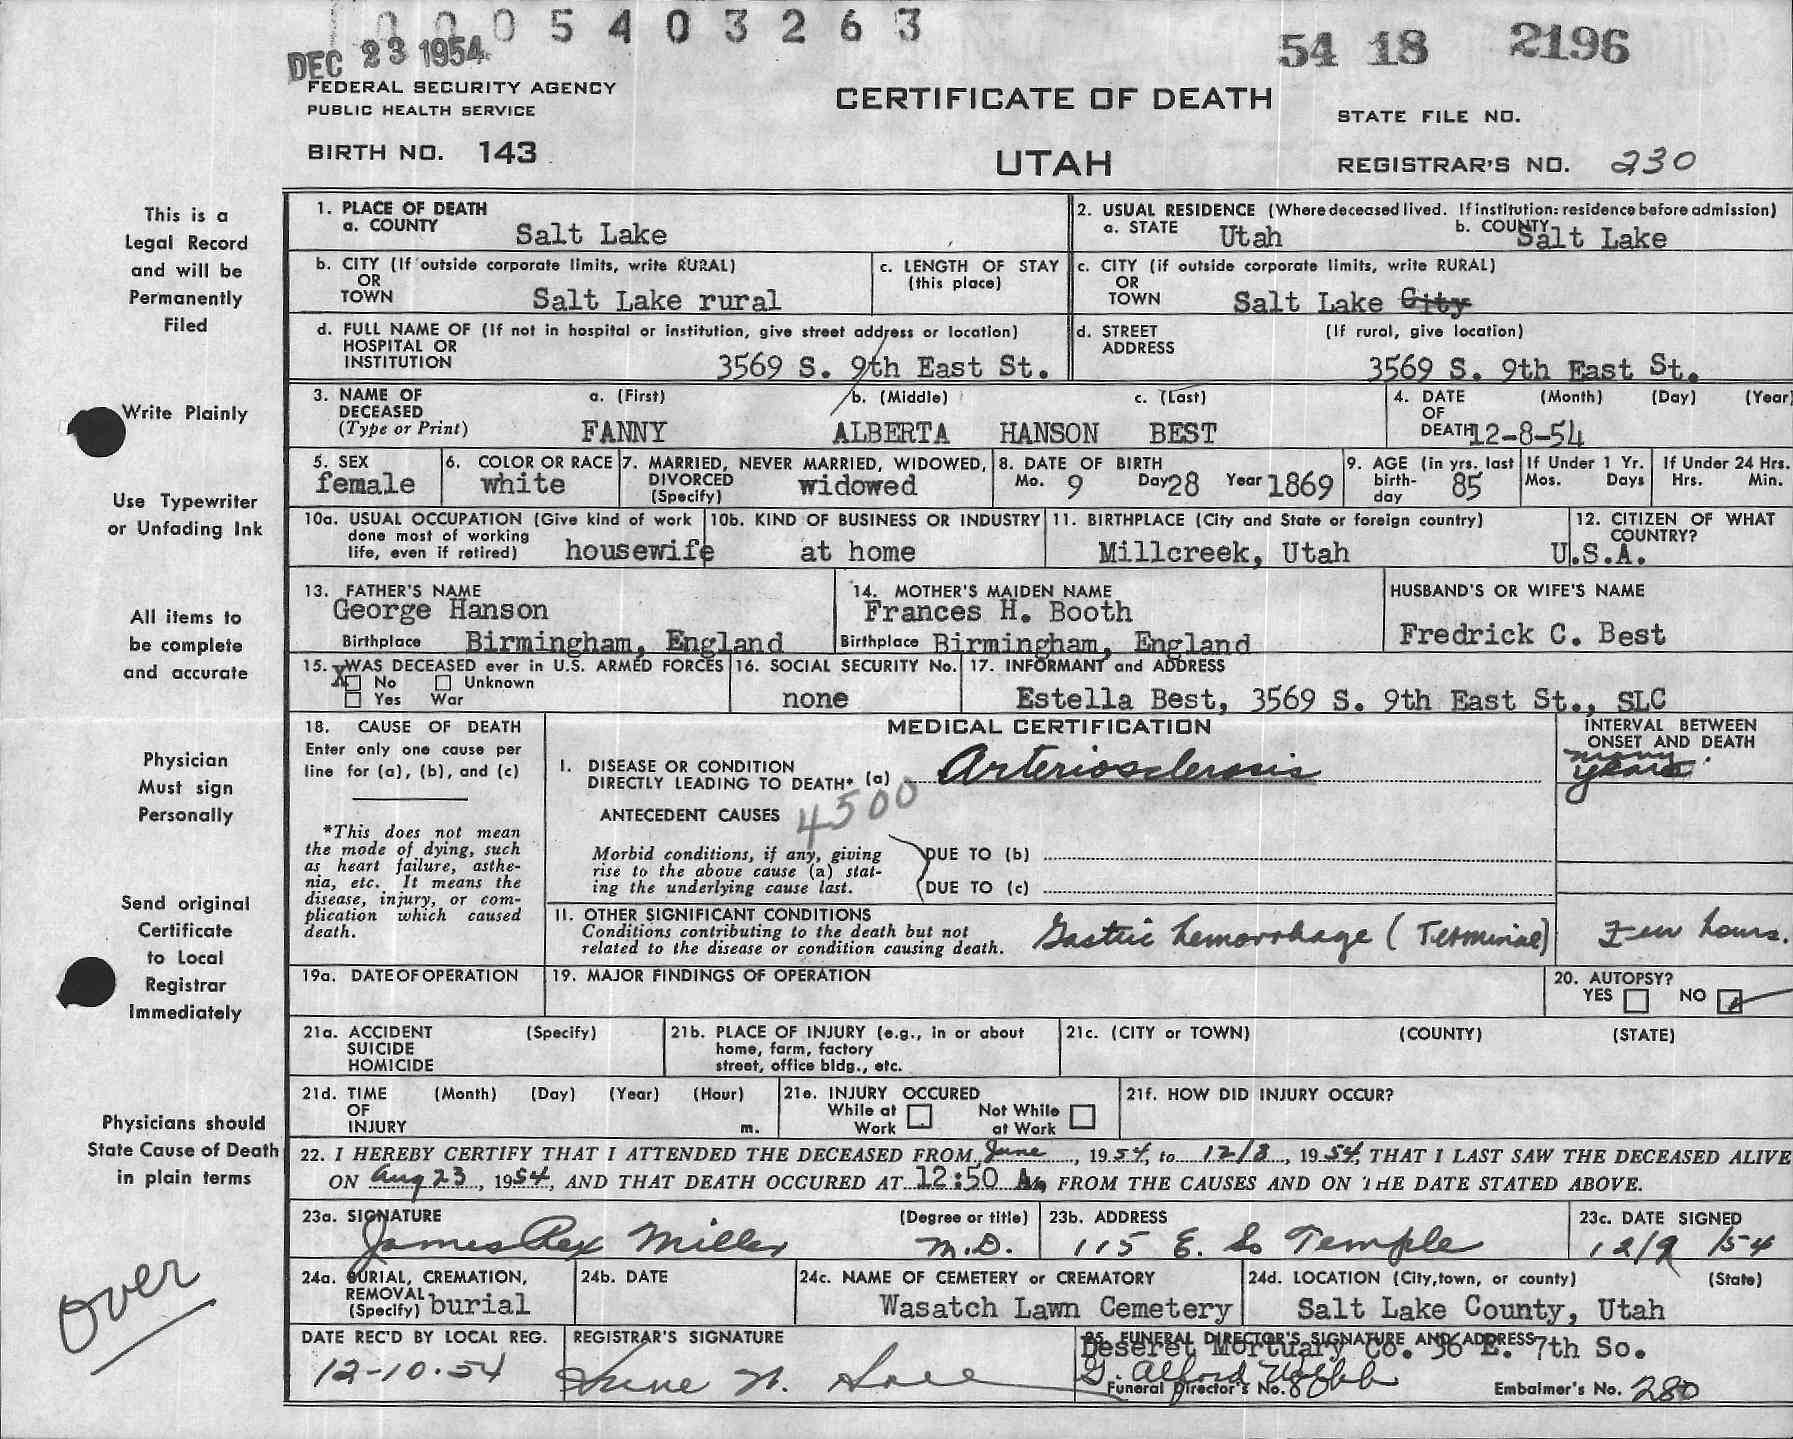 0005403263
DEC 23 1954
54 18 2196
FEDERAL SECURITY AGENCY
PUBLIC HEALTH SERVICE
CERTIFICATE OF DEATH
STATE FILE NO.
BIRTH NO. 143
UTAH
REGISTRAR'S NO. 230
This is a
Legal Record
and will be
Permanently
Filed
Write Plainly
Use Typewriter
or Unfading Ink
All items to
be complete
and accurate
Physician
Must sign
Personally
Send original
Certificate
to Local
Registrar
Immediately
Physicians should
State Cause of Death
in plain terms
over
1. PLACE OF DEATH
a. COUNTY Salt Lake
2. USUAL RESIDENCE (Where deceased lived. If institution: residence before admission)
a. STATE Utah b. COUNTY Salt Lake
b. CITY (If outside corporate limits, write RURAL)
OR
TOWN Salt Lake rural
c. LENGTH OF STAY
(this place)
c. CITY (if outside corporate limits, write RURAL)
OR
TOWN Salt Lake City
d. FULL NAME OF (If not in hospital or institution, give street address or location)
HOSPITAL OR
INSTITUTION 3569 S. 9th East St.
d. STREET (If rural, give location)
ADDRESS 3569 S. 9th East St.
3. NAME OF a. (First) b. (Middle) c. (Last)
DECEASED
(Type or Print) FANNY ALBERTA HANSON BEST
4. DATE (Month) (Day) (Year)
OF
DEATH 12-8-54
5. SEX
female
6. COLOR OR RACE
white
7. MARRIED, NEVER MARRIED, WIDOWED,
DIVORCED
(Specify) widowed
8. DATE OF BIRTH
Mo. 9 Day 28 Year 1869
9. AGE (in yrs. last
birth-
day 85
If Under 1 Yr.
Mos. Days
If Under 24 Hrs.
Hrs. Min.
10a. USUAL OCCUPATION (Give kind of work
done most of working
life, even if retired) housewife
10b. KIND OF BUSINESS OR INDUSTRY
at home
11. BIRTHPLACE (City and State or foreign country)
Millcreek, Utah
12. CITIZEN OF WHAT
COUNTRY?
U.S.A.
13. FATHER'S NAME
George Hanson
Birthplace Birmingham, England
14. MOTHER'S MAIDEN NAME
Frances H. Booth
Birthplace Birmingham, England
HUSBAND'S OR WIFE'S NAME
Fredrick C. Best
15. WAS DECEASED ever in U.S. ARMED FORCES
X No Unknown
Yes War
16. SOCIAL SECURITY No.
none
17. INFORMANT and ADDRESS
Estella Best, 3569 S. 9th East St., SLC
18. CAUSE OF DEATH
Enter only one cause per
line for (a), (b), and (c)
*This does not mean
the mode of dying, such
as heart failure, asthe-
nia, etc. It means the
disease, injury, or com-
plication which caused
death.
MEDICAL CERTIFICATION
INTERVAL BETWEEN
ONSET AND DEATH
I. DISEASE OR CONDITION
DIRECTLY LEADING TO DEATH* (a) Arteriosclerosis
many
years.
ANTECEDENT CAUSES 4500
Morbid conditions, if any, giving
rise to the above cause (a) stat-
ing the underlying cause last.
DUE TO (b)
DUE TO (c)
II. OTHER SIGNIFICANT CONDITIONS
Conditions contributing to the death but not
related to the disease or condition causing death.
Gastric hemorrhage (Terminal) Few hours.
19a. DATE OF OPERATION
19. MAJOR FINDINGS OF OPERATION
20. AUTOPSY?
YES NO
21a. ACCIDENT (Specify)
SUICIDE
HOMICIDE
21b. PLACE OF INJURY (e.g., in or about
home, farm, factory
street, office bldg., etc.
21c. (CITY or TOWN) (COUNTY) (STATE)
21d. TIME (Month) (Day) (Year) (Hour)
OF
INJURY m.
21e. INJURY OCCURED
While at Not While
Work at Work
21f. HOW DID INJURY OCCUR?
22. I HEREBY CERTIFY THAT I ATTENDED THE DECEASED FROM June, 1954, to 12/8, 1954, THAT I LAST SAW THE DECEASED ALIVE
ON Aug 23, 1954, AND THAT DEATH OCCURED AT 12:50 A m, FROM THE CAUSES AND ON THE DATE STATED ABOVE.
23a. SIGNATURE (Degree or title)
James Rex Miller M.D.
23b. ADDRESS
115 E. So Temple
23c. DATE SIGNED
12/9/54
24a. BURIAL, CREMATION,
REMOVAL
(Specify) burial
24b. DATE
24c. NAME OF CEMETERY or CREMATORY
Wasatch Lawn Cemetery
24d. LOCATION (City, town, or county) (State)
Salt Lake County, Utah
DATE REC'D BY LOCAL REG.
12-10-54
REGISTRAR'S SIGNATURE
25. FUNERAL DIRECTOR'S SIGNATURE AND ADDRESS
Deseret Mortuary Co. 36 E. 7th So.
G. Alford Webb
Funeral Director's No.
Embalmer's No. 280